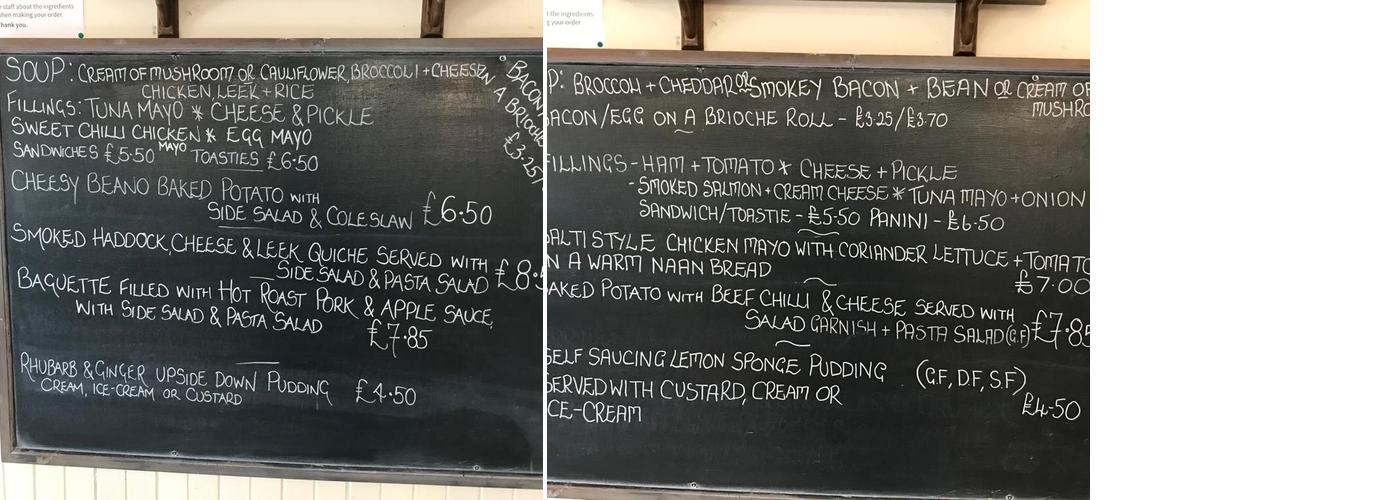 staff about the ingredients
when making your order.
Thank you.
SOUP: CREAM OF MUSHROOM OR CAULIFLOWER, BROCCOLI + CHEESE
CHICKEN, LEEK + RICE
FILLINGS: TUNA MAYO * CHEESE & PICKLE
SWEET CHILLI CHICKEN * EGG MAYO
MAYO
SANDWICHES £5·50 TOASTIES £6·50
BACON
IN A BRIOCHE
£3.25/
CHEESY BEANO BAKED POTATO WITH
SIDE SALAD & COLESLAW £6·50
SMOKED HADDOCK, CHEESE & LEEK QUICHE SERVED WITH
SIDE SALAD & PASTA SALAD £8·5
BAGUETTE FILLED WITH HOT ROAST PORK & APPLE SAUCE,
WITH SIDE SALAD & PASTA SALAD £7·85
RHUBARB & GINGER UPSIDE DOWN PUDDING £4·50
CREAM, ICE-CREAM OR CUSTARD
t the ingredients
g your order
P: BROCCOLI + CHEDDAR OR SMOKEY BACON + BEAN OR CREAM OF
MUSHRO
ACON/EGG ON A BRIOCHE ROLL - £3.25/£3.70
FILLINGS - HAM + TOMATO * CHEESE + PICKLE
- SMOKED SALMON + CREAM CHEESE * TUNA MAYO + ONION
SANDWICH/TOASTIE - £5·50 PANINI - £6·50
ALTI STYLE CHICKEN MAYO WITH CORIANDER LETTUCE + TOMATO
N A WARM NAAN BREAD £7.00
AKED POTATO WITH BEEF CHILLI & CHEESE SERVED WITH
SALAD GARNISH + PASTA SALAD (G.F) £7·85
SELF SAUCING LEMON SPONGE PUDDING (G.F, D.F, S.F)
SERVED WITH CUSTARD, CREAM OR £4·50
CE-CREAM